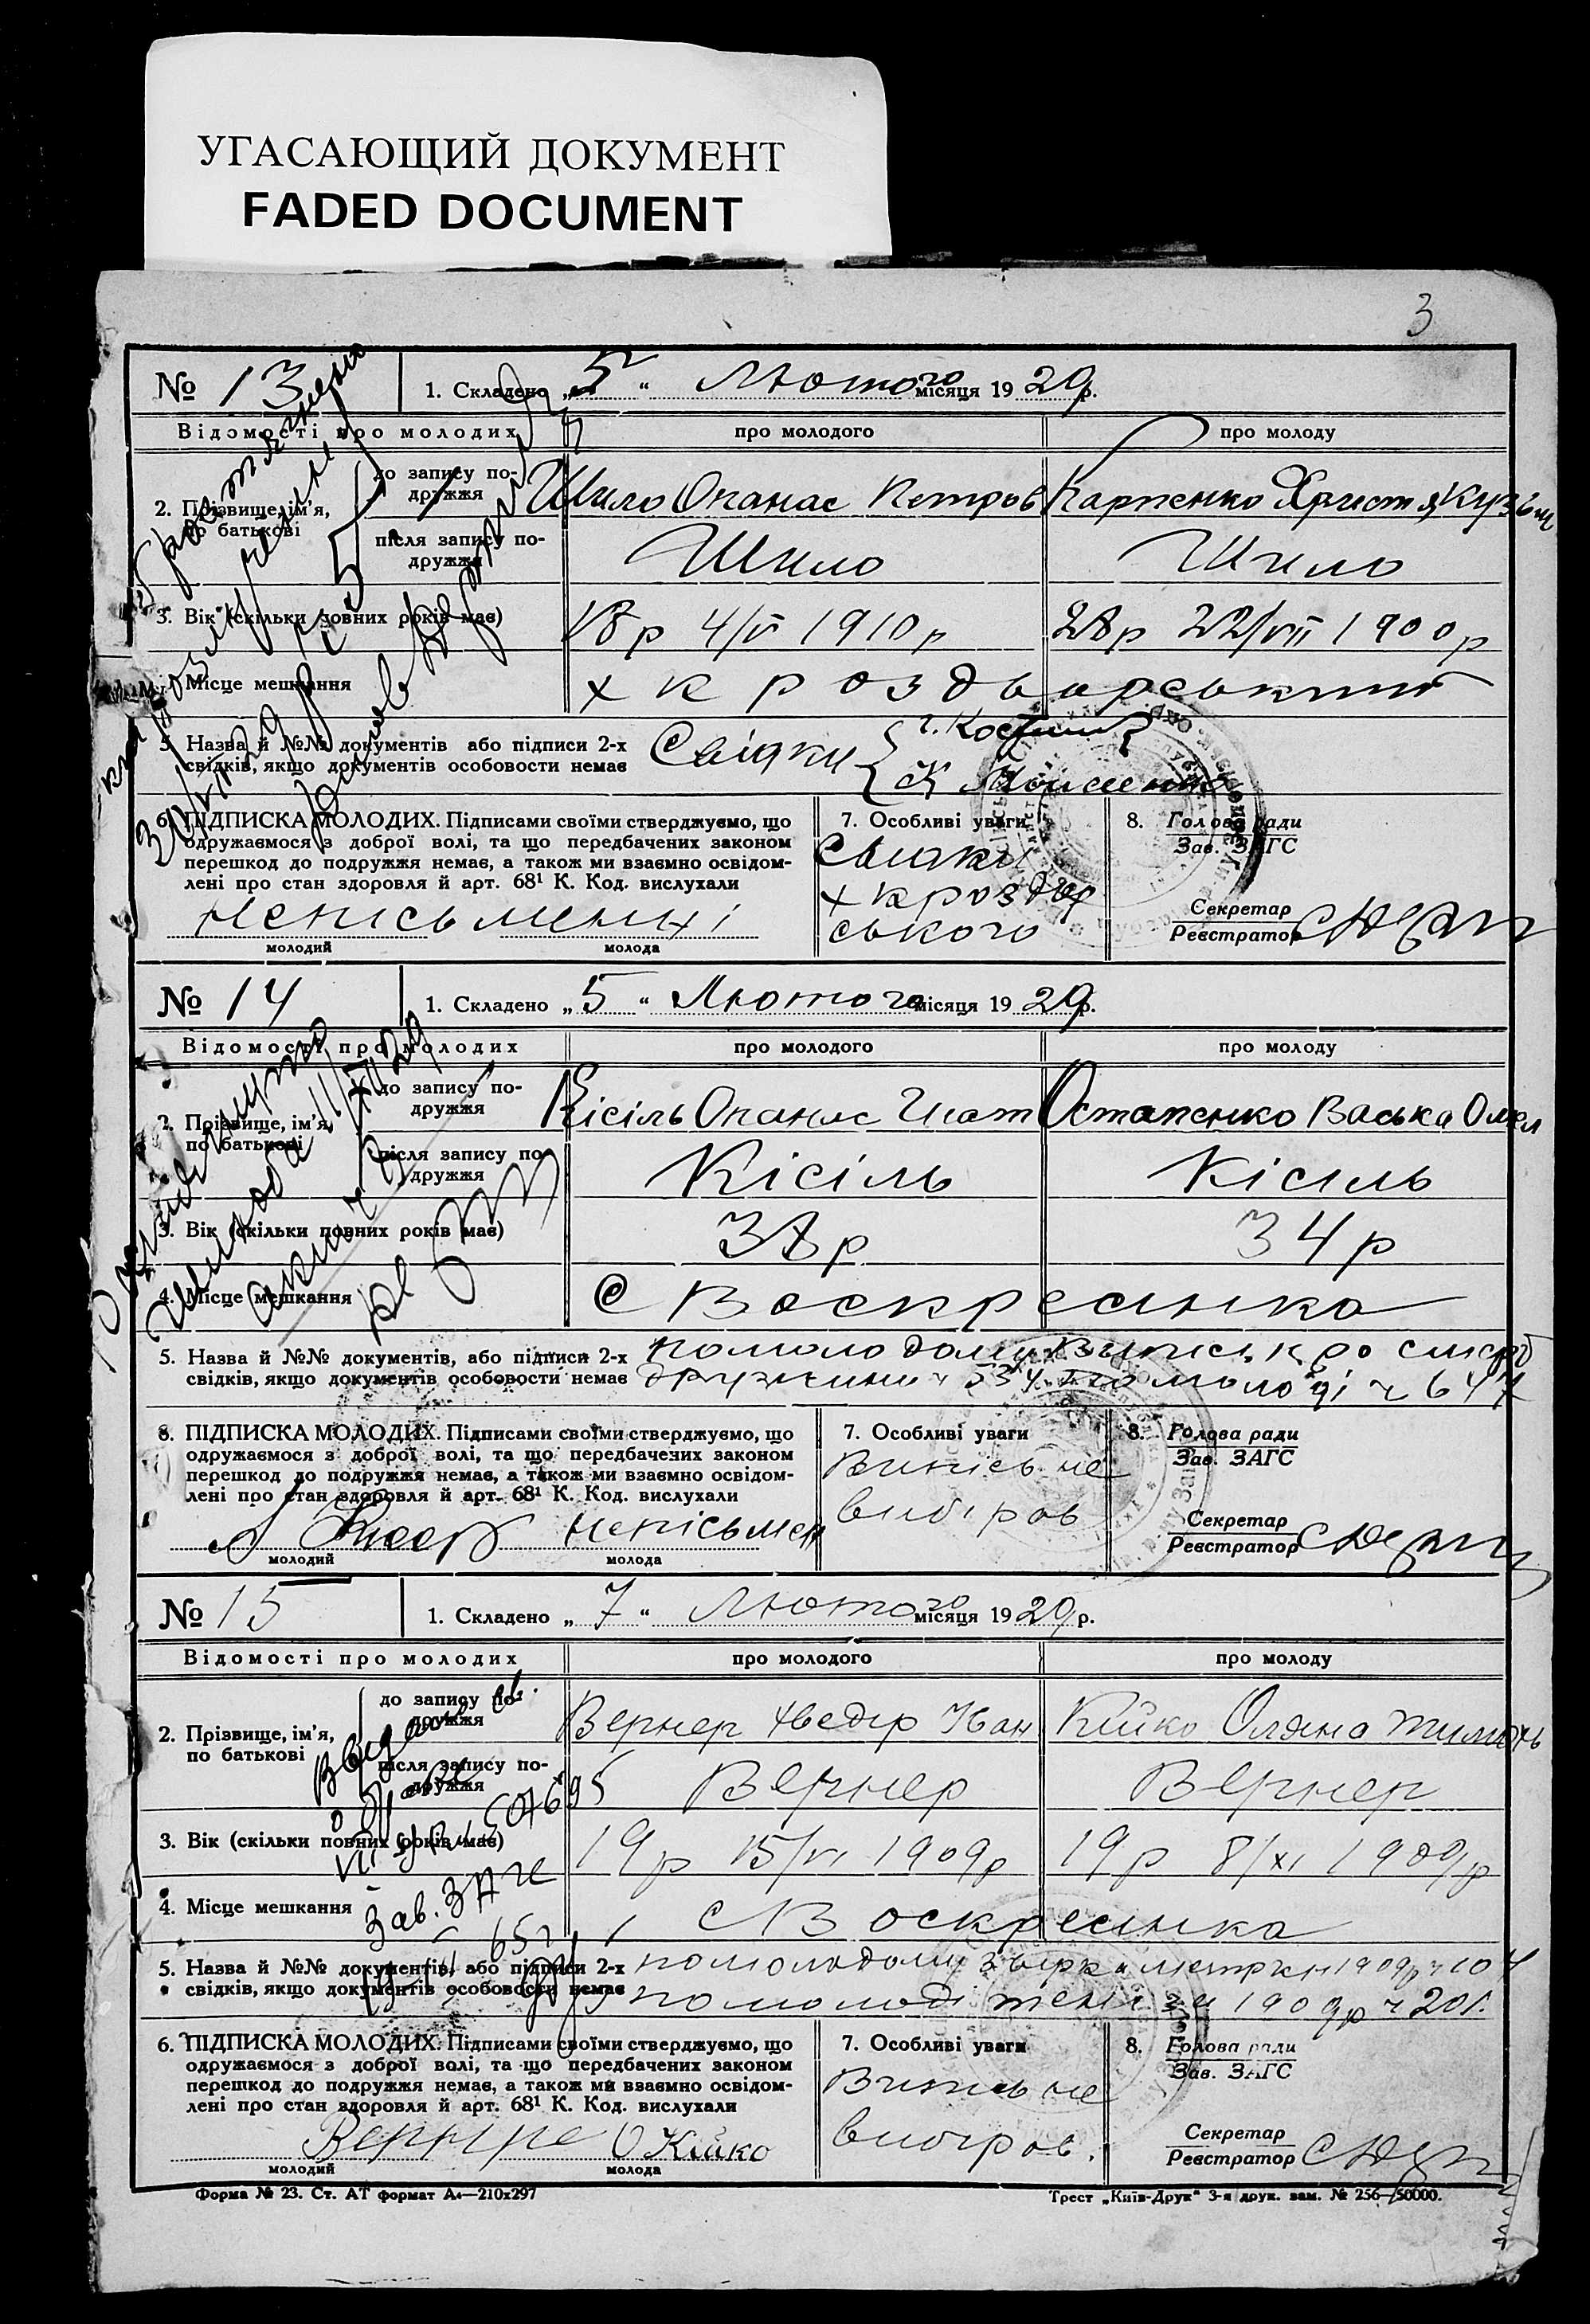 УГАСАЮЩИЙ ДОКУМЕНТ
FADED DOCUMENT
3
№ 13
1. Складено „5“ Лютого місяця 1929р.
Відомості про молодих
про молодого
про молоду
2. Прізвище, ім'я, по батькові
до запису подружжя
Шило Опанас Петров
Карпенко Христя Кузьм
після запису подружжя
Шило
Шило
3. Вік (скільки повних років має)
18р 4/V 1910р
28р 22/VII 1900р
4. Місце мешкання
х к роздворський
5. Назва й №№ документів або підписи 2-х
свідків, якщо документів особовости немає
Свідки
6. ПІДПИСКА МОЛОДИХ. Підписами своїми стверджуємо, що
одружаємося з доброї волі, та що передбачених законом
перешкод до подружжя немає, а також ми взаємно освідом-
лені про стан здоровля й арт. 68¹ К. Код. вислухали
неписьменні
молодий
молода
7. Особливі уваги
Свідки
х к роздвор
ського
8. Голова ради
Зав. ЗАГС
Секретар
Реєстратор
№ 14
1. Складено „5“ Лютого місяця 1929р.
Відомості про молодих
про молодого
про молоду
2. Прізвище, ім'я, по батькові
до запису подружжя
Кісіль Опанас Игат
Остапенко Васька Омел
після запису подружжя
Кісіль
Кісіль
3. Вік (скільки повних років має)
38р
34р
4. Місце мешкання
с Воскресинка
5. Назва й №№ документів, або підписи 2-х
свідків, якщо документів особовости немає
помолодому Випись про смерт
дружини ч 554 по молоді ч 647
6. ПІДПИСКА МОЛОДИХ. Підписами своїми стверджуємо, що
одружаємося з доброї волі, та що передбачених законом
перешкод до подружжя немає, а також ми взаємно освідом-
лені про стан здоровля й арт. 68¹ К. Код. вислухали
неписьмен
молодий
молода
7. Особливі уваги
Випись не
вибіров
8. Голова ради
Зав. ЗАГС
Секретар
Реєстратор
№ 15
1. Складено „7“ Лютого місяця 1929р.
Відомості про молодих
про молодого
про молоду
2. Прізвище, ім'я, по батькові
до запису подружжя
Вернер Хведір Іван
Кійко Оляна Тимохь
після запису подружжя
Вернер
Вернер
3. Вік (скільки повних років має)
19р 15/VI 1909р
19р 8/XI 1909р
4. Місце мешкання
с Воскресинка
5. Назва й №№ документів, або підписи 2-х
свідків, якщо документів особовости немає
помолодому звірка метрки 1909р ч 104
помолоді теж за 1909р ч 201.
6. ПІДПИСКА МОЛОДИХ. Підписами своїми стверджуємо, що
одружаємося з доброї волі, та що передбачених законом
перешкод до подружжя немає, а також ми взаємно освідом-
лені про стан здоровля й арт. 68¹ К. Код. вислухали
О Кійко
молодий
молода
7. Особливі уваги
Випись не
вибіров.
8. Голова ради
Зав. ЗАГС
Секретар
Реєстратор
Форма № 23. Ст. АТ формат А4—210х297
Трест „Київ-Друк“ 3-я друк. зам. № 256—50000.